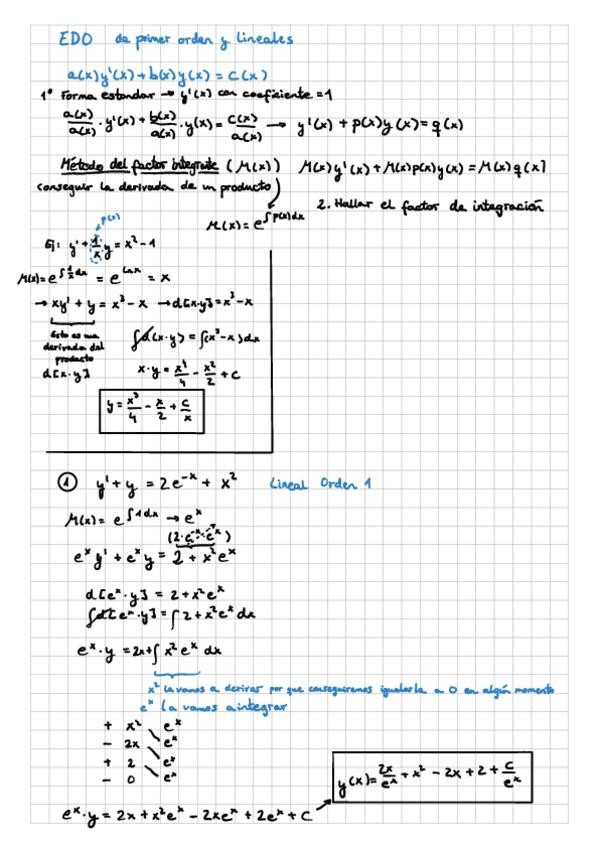 EDO de primer orden y lineales
a(x)y'(x)+b(x)y(x) = c(x)
1º Forma estandar → y'(x) con coeficiente = 1
a(x)/a(x) · y'(x) + b(x)/a(x) · y(x) = c(x)/a(x) → y'(x) + p(x)y(x) = q(x)
Método del factor integrante (M(x)) M(x)y'(x) + M(x)p(x)y(x) = M(x)q(x)
(conseguir la derivada de un producto)
2. Hallar el factor de integración
M(x) = e^∫p(x)dx
p(x)
Ej: y' + 1/x y = x² - 1
M(x) = e^∫1/x dx = e^lnx = x
→ xy' + y = x³ - x → d[x·y] = x³ - x
Esto es una
derivada del
producto
d[x·y]
∫d(x·y) = ∫(x³-x)dx
x·y = x⁴/4 - x²/2 + C
y = x³/4 - x/2 + C/x
① y' + y = 2e^-x + x² Lineal Orden 1
M(x) = e^∫1dx → e^x
(2·e^-x·e^x)
e^x y' + e^x y = 2 + x²e^x
d[e^x·y] = 2 + x²e^x
∫d[e^x·y] = ∫2 + x²e^x dx
e^x·y = 2x + ∫x²e^x dx
x² la vamos a derivar por que conseguiremos igualarla a 0 en algún momento
e^x la vamos a integrar
+ x² e^x
- 2x e^x
+ 2 e^x
- 0 e^x
y(x) = 2x/e^x + x² - 2x + 2 + C/e^x
e^x·y = 2x + x²e^x - 2xe^x + 2e^x + C